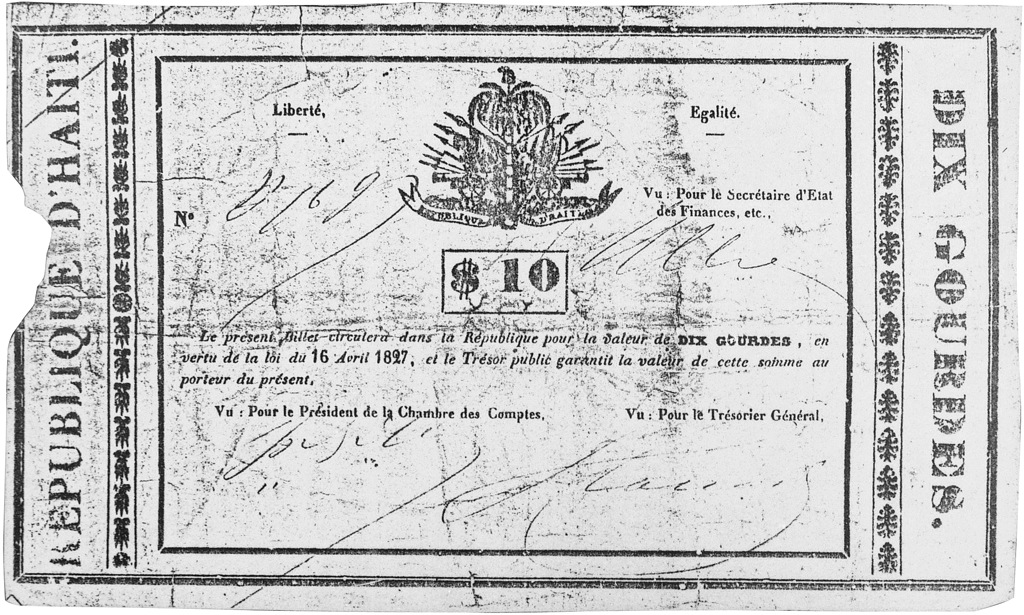 REPUBLIQUE D'HAITI.
Liberté,
Egalité.
REPUBLIQUE D'HAITI
Vu : Pour le Secrétaire d'Etat
des Finances, etc.,
N°
$ 10
Le présent Billet circulera dans la République pour la valeur de DIX GOURDES, en
vertu de la loi du 16 Avril 1827, et le Trésor public garantit la valeur de cette somme au
porteur du présent.
Vu : Pour le Président de la Chambre des Comptes,
Vu : Pour le Trésorier Général,
DIX GOURDES.